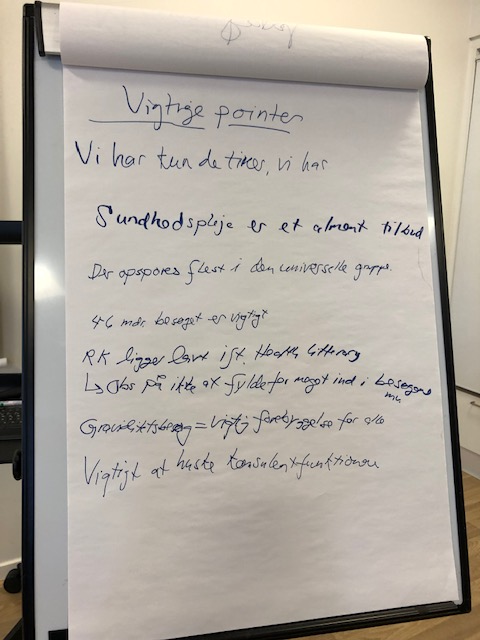 Vigtige pointer
Vi har kun de timer, vi har
Sundhedspleje er et alment tilbud
Der opspores flest i den universelle gruppe.
4-6 mdr. besøget er vigtigt
RK ligger lavt ift. Health litteracy
↳ Obs på ikke at fylde for meget ind i besøgene
= vigtig forebyggelse for alle
Vigtigt at huske konsulentfunktionen